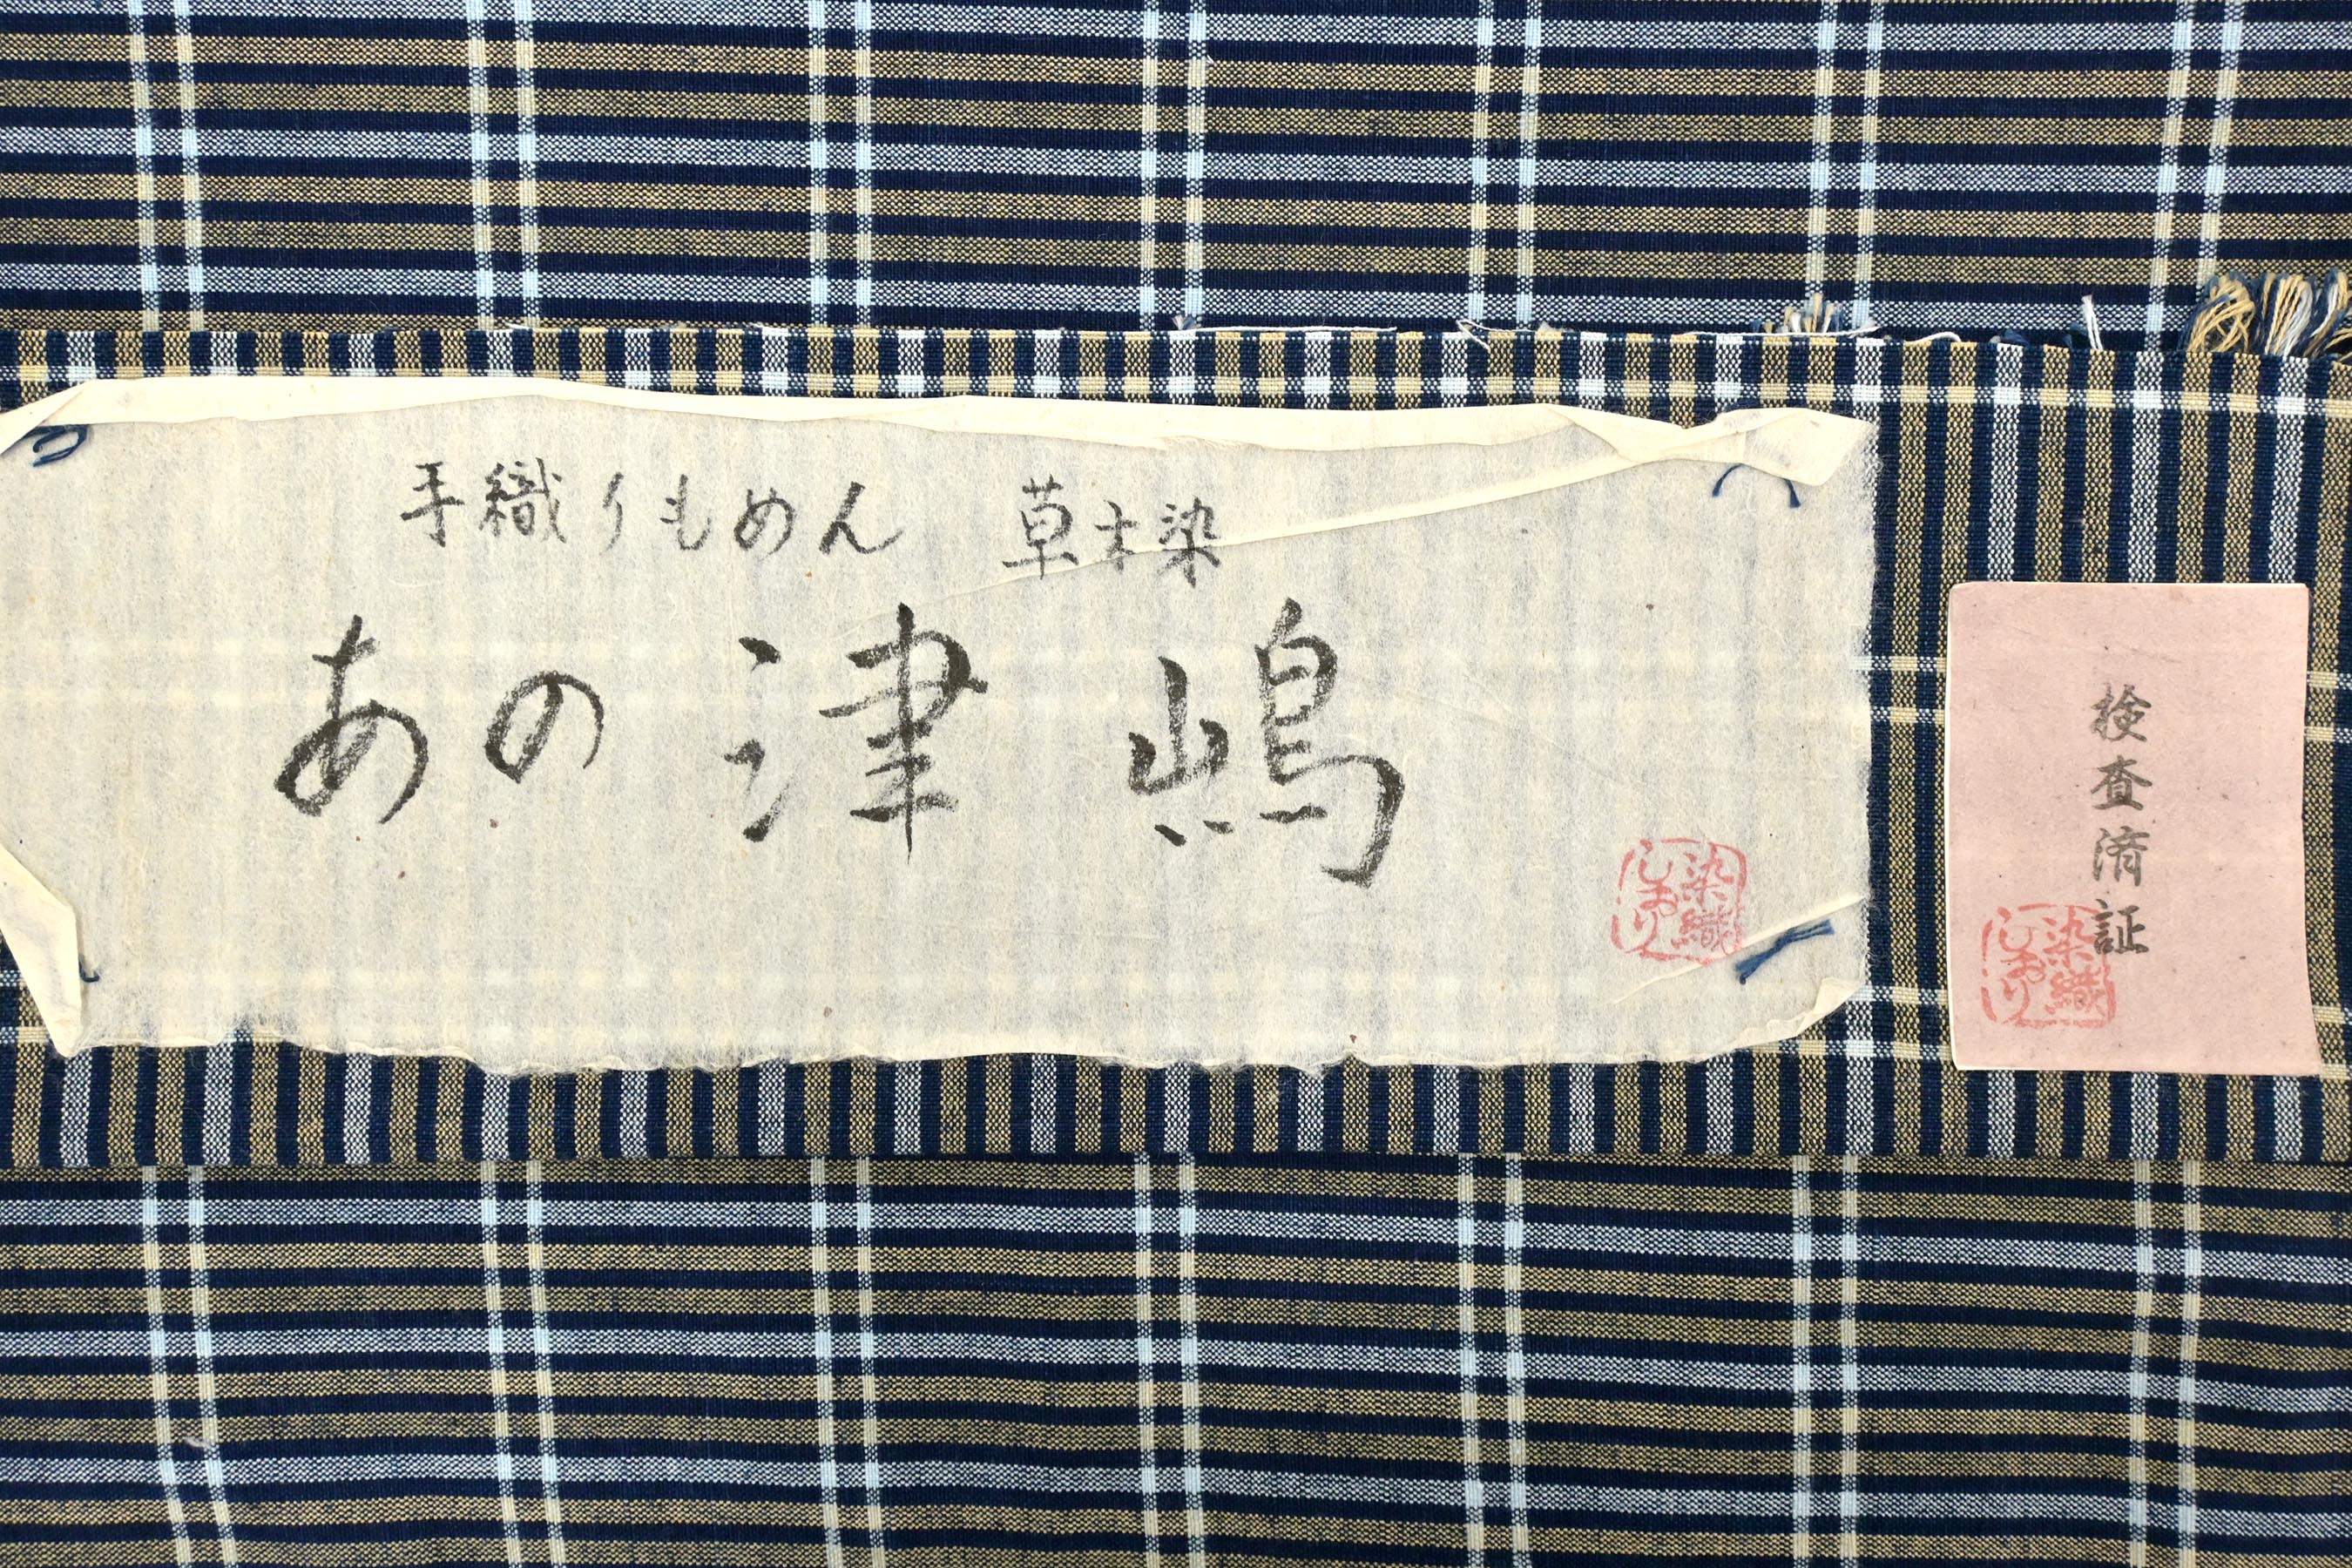 手織りもめん 草木染
あの津嶋
染織
しおり
検査済証
染織
しおり